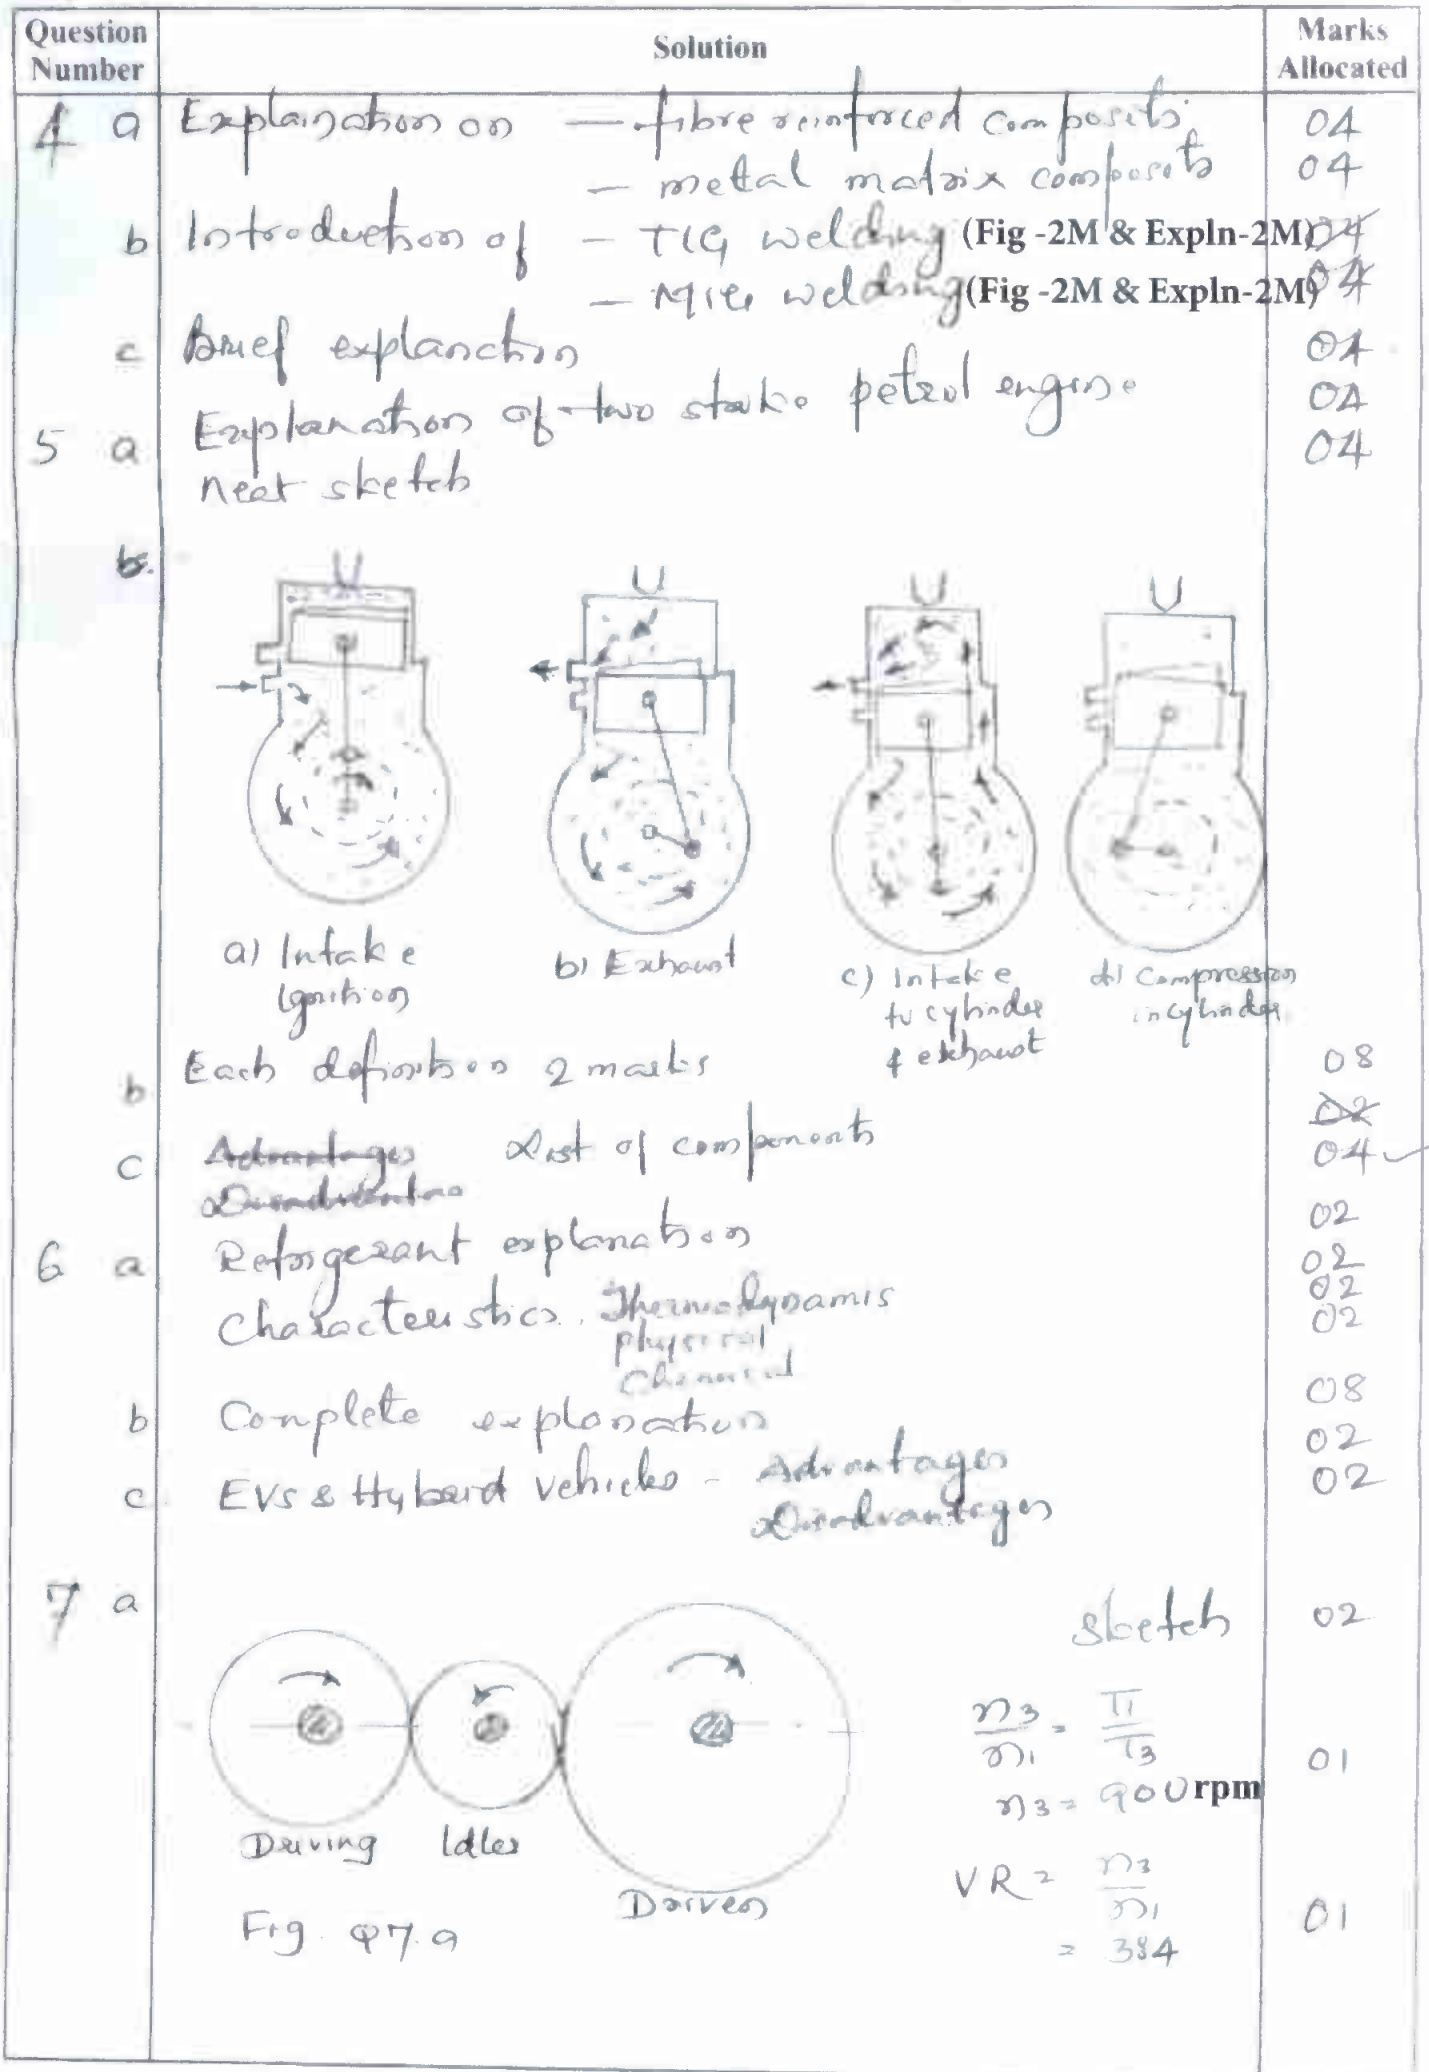 Question Number Solution Marks Allocated
4 a Explaination on — fibre reinforced composits. 04
— mettal matrix composits 04
b Introduction of — TIG welding (Fig -2M & Expln-2M) 04
— MIG welding (Fig -2M & Expln-2M) 04
c Brief explanction 04
5 a Explanation of two stroke petrol engine 04
Neat sketch 04
b.
a) Intake Ignition
b) Exhaust
c) Intake to cylinder & exhaust
d) Compression in cylinder
b Each definition 2 marks 08
02
c Advantages List of components 04
Disadvantae
6 a Refrigerant explanation 02
Characteristics. Thermodynamis 02
physical 02
Chemical 02
b Complete explanation 08
c EVs & Hybard Vehicles - Advantages 02
Disadvantages 02
7 a sketch 02
n3/n1 = T1/T3
n3 = 900 rpm 01
VR = n3/n1 01
= 384
Driving Idler
Driven
Fig Q7.a